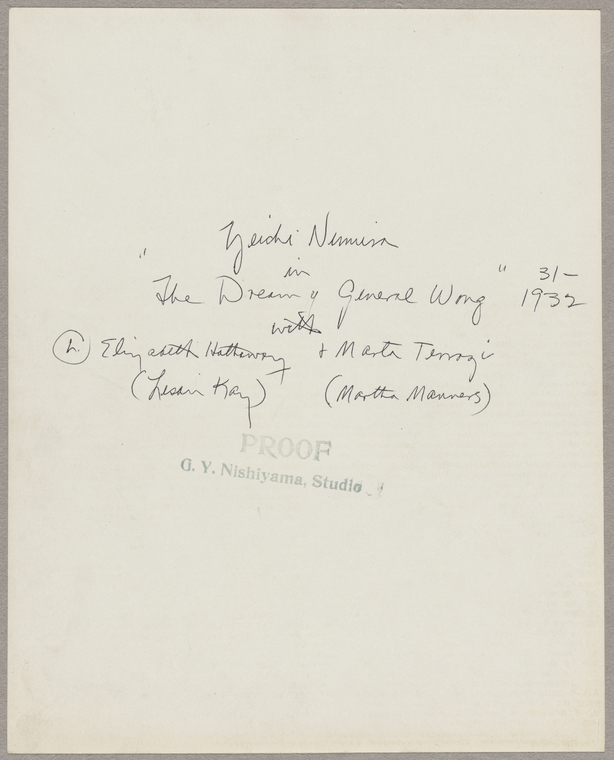 Yeichi Nimura
in
"The Dream of General Wong" 31-
1932
with
(L.) Elizabeth Hathaway + Marta
(Lisan Kay) (Martha Manners)
PROOF
G. Y. Nishiyama, Studio